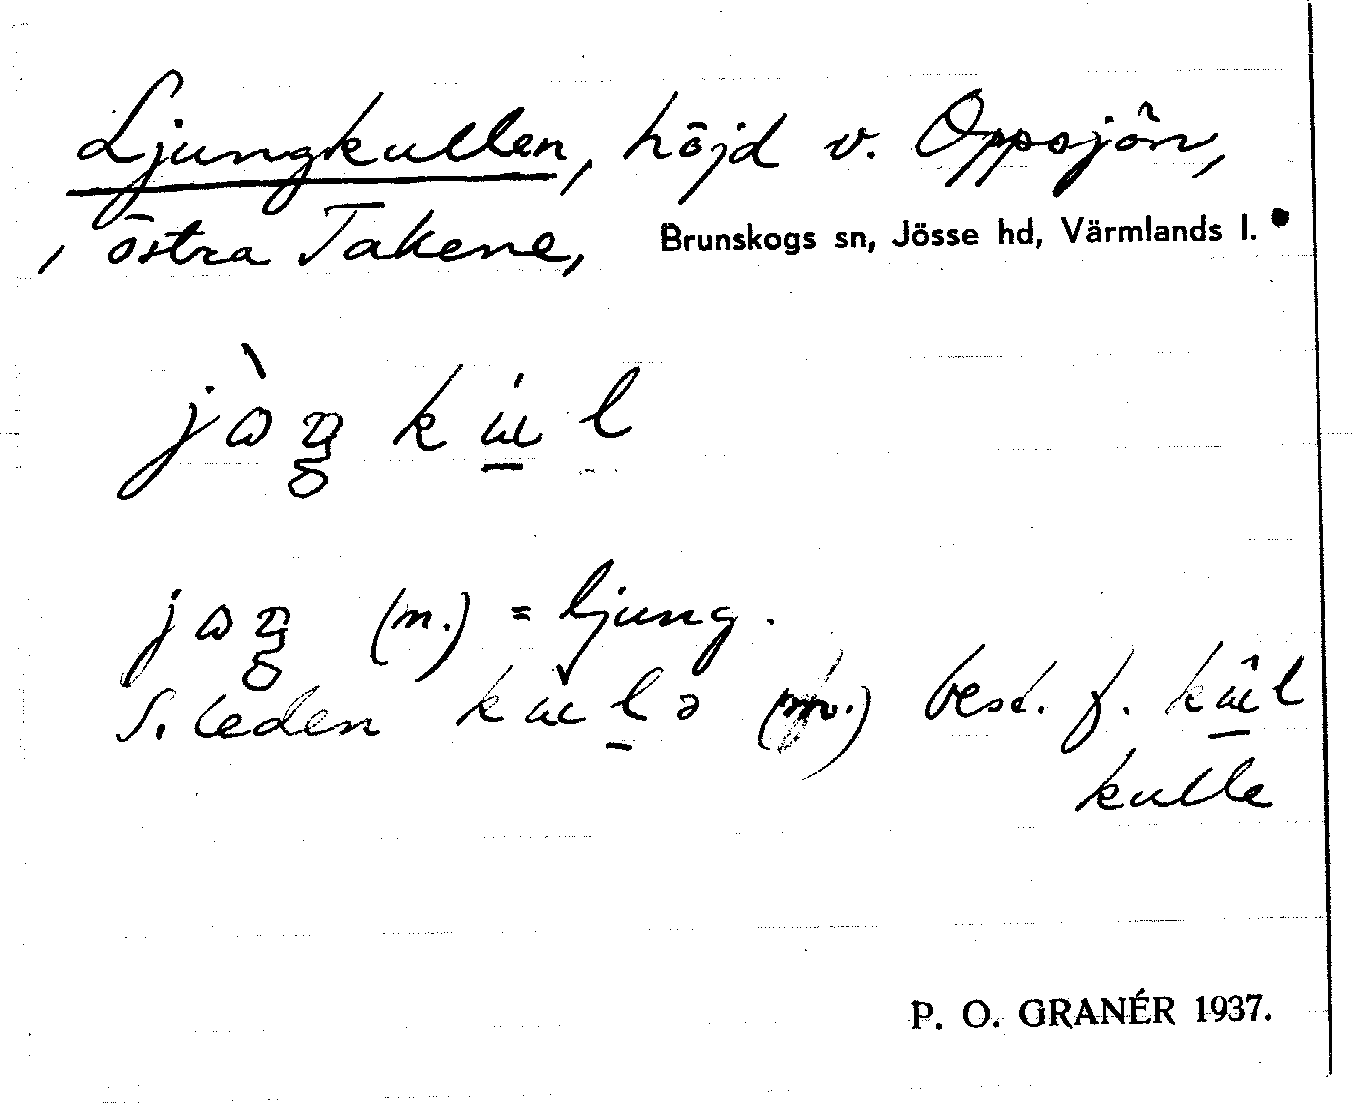 Ljungkullen, höjd v. Oppsjön,
, östra Takene, Brunskogs sn, Jösse hd, Värmlands l.
(m.) = ljung.
S. leden (m.) best. f.
kulle
P. O. GRANÉR 1937.